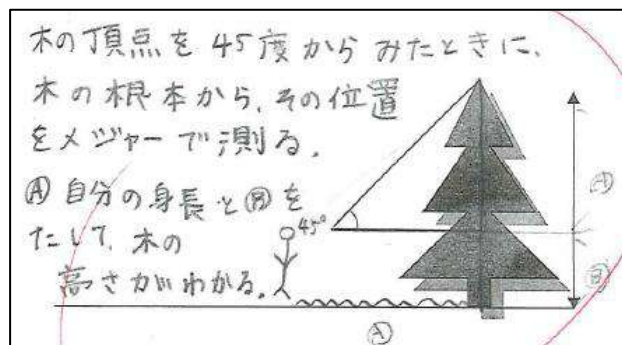 木の頂点を45度からみたときに、
木の根本から、その位置
をメジャーで測る。
Ⓐ自分の身長とⒷを
たして、木の
高さがわかる。
45°
Ⓐ
Ⓑ
Ⓐ